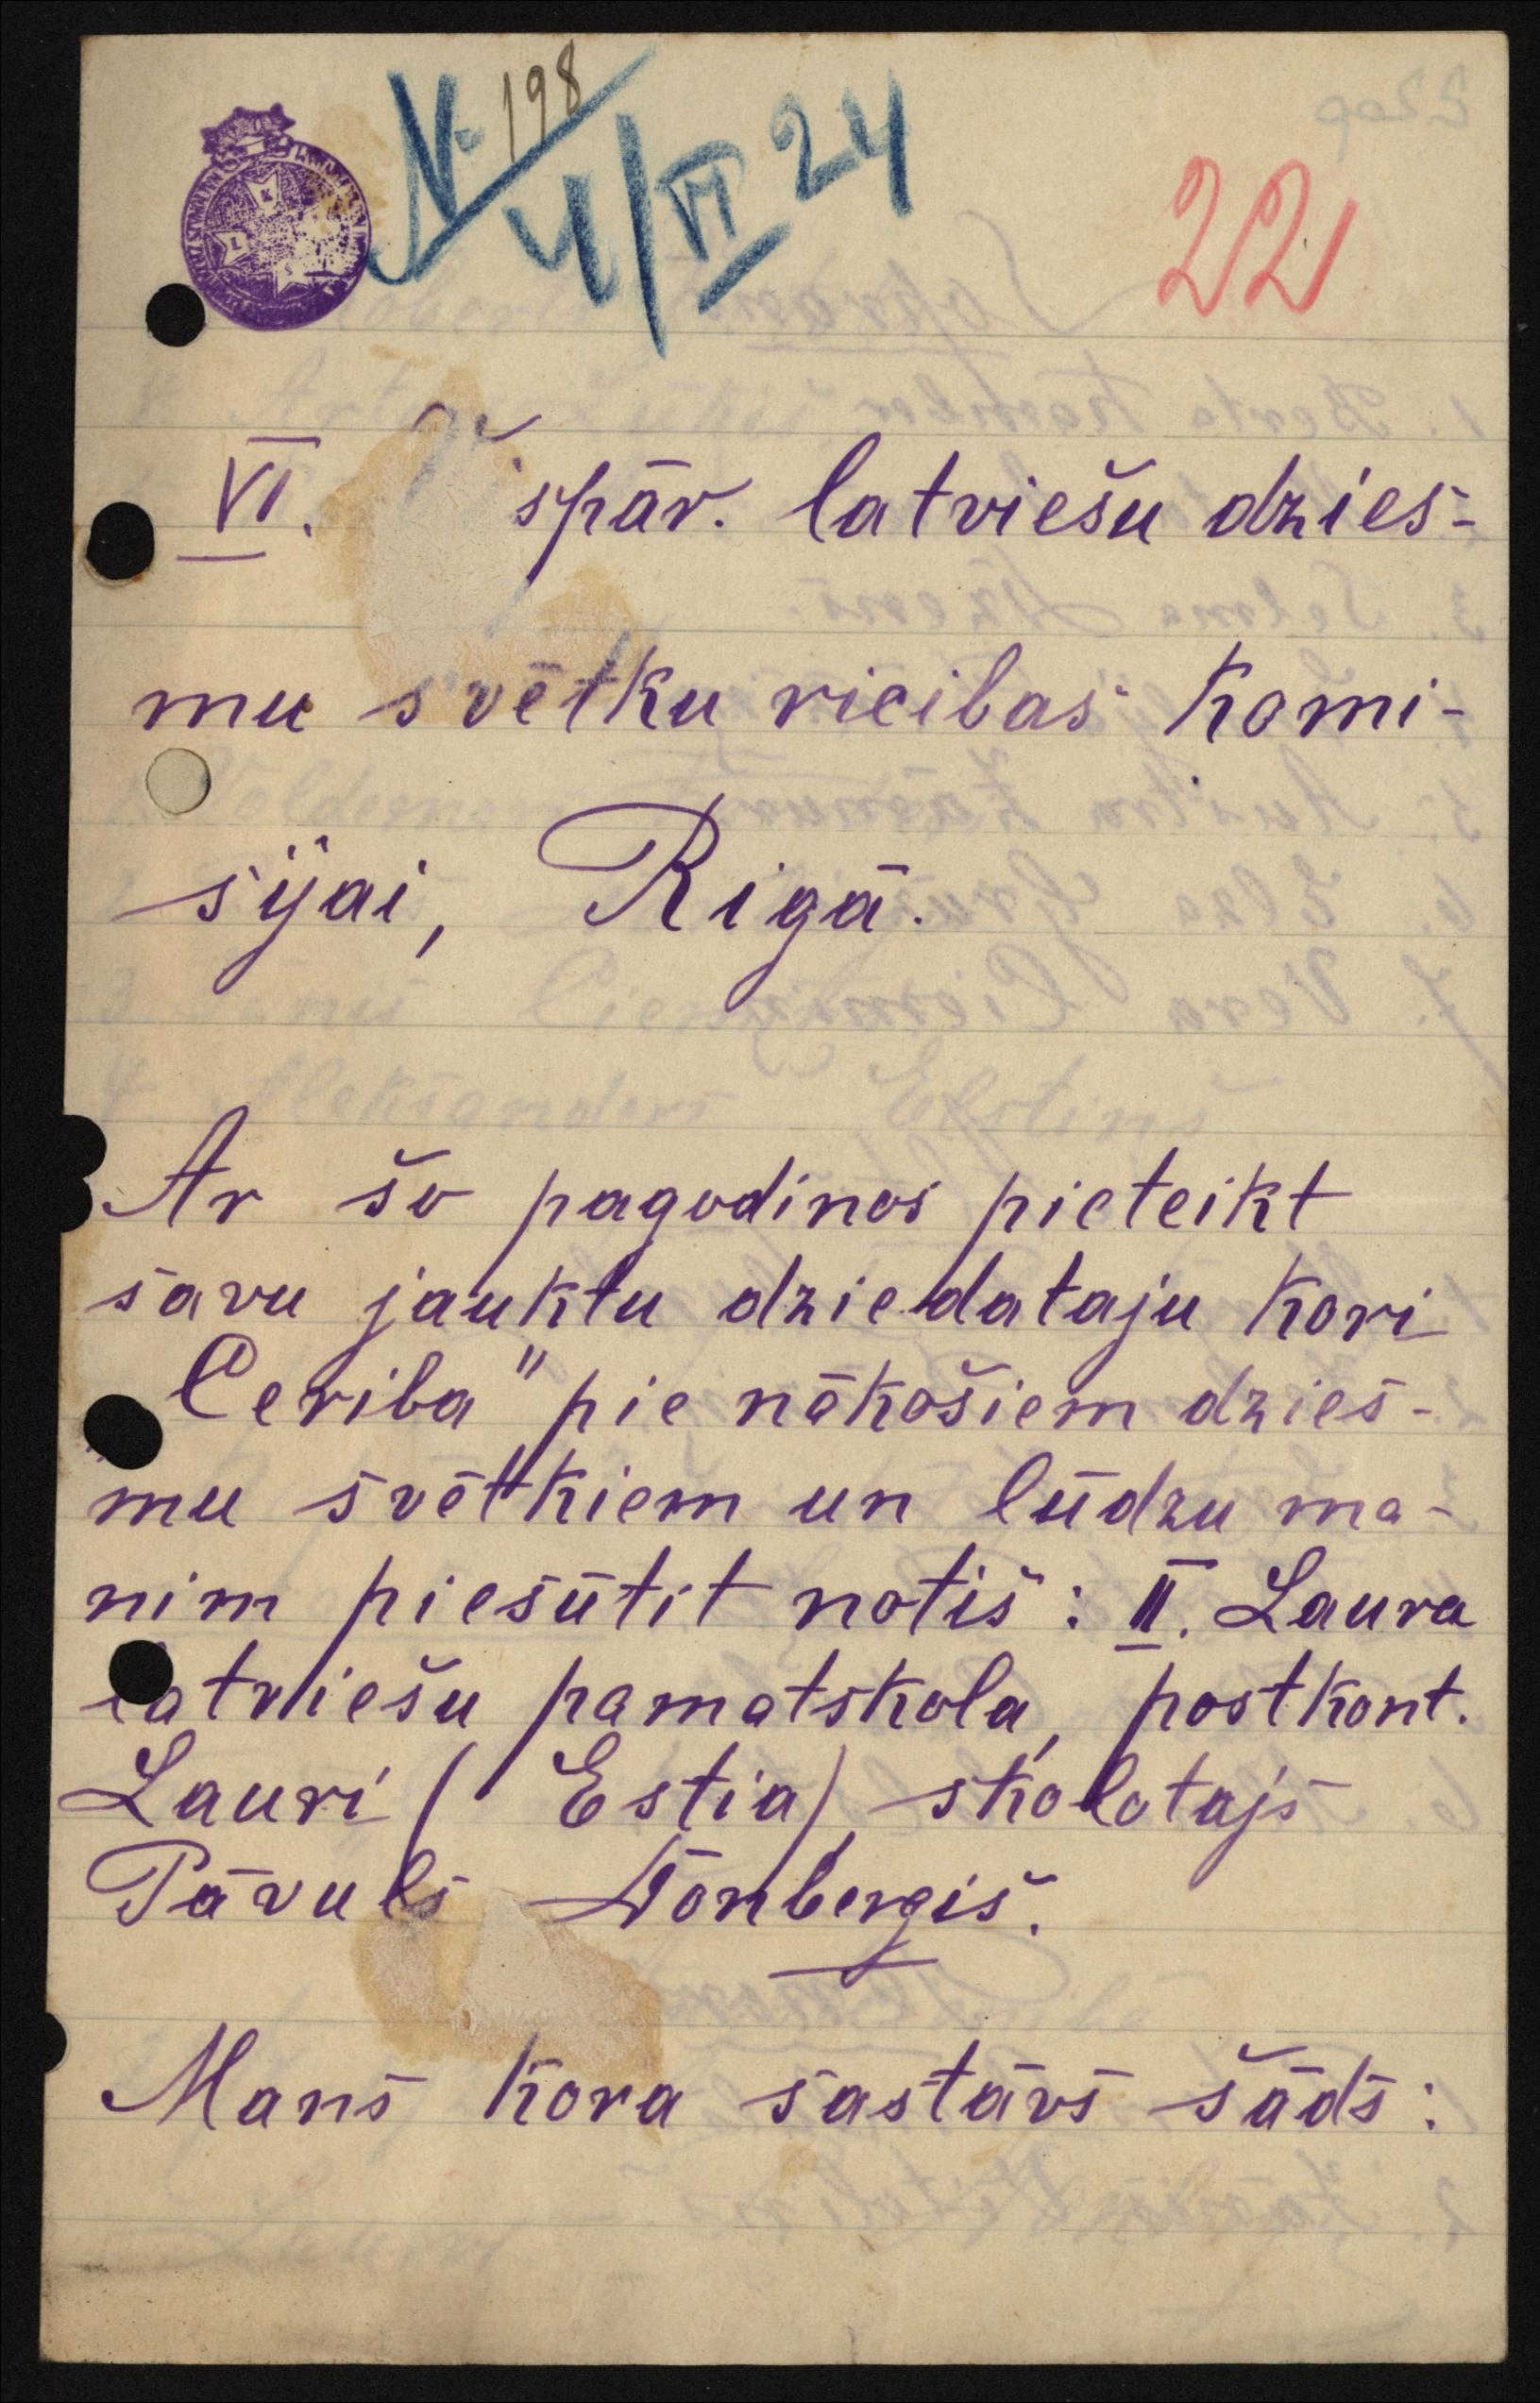 № 198
4/VI 24
22
VI. Vispār. latviešu dzies-
mu svētku ricibas komi-
sijai, Rigā.
Ar šo pagodinos pieteikt
savu jauktu dziedataju kori
„Ceriba" pie nākošiem dzies-
mu svētkiem un lūdzu ma-
nim piesūtit notis: II. Laura
latviešu pamatskola, postkont.
Lauri (Estia), skolotajs
Pāvuls
Mans kora sastāvs šāds: